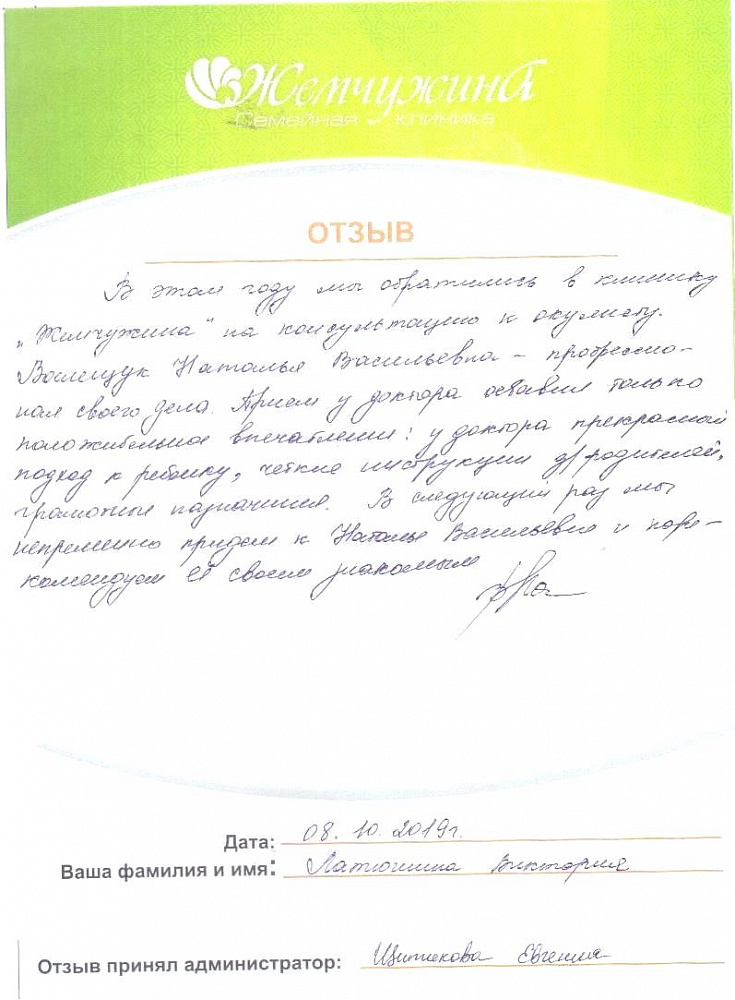 Жемчужина
Семейная клиника
ОТЗЫВ
В этом году мы обратились в клинику
„Жемчужина" на консультацию к окулисту.
Наталья Васильевна – профессио-
нал своего дела. Прием у доктора оставил только
положительное впечатление: у доктора прекрасный
подход к ребенку, четкие инструкции д/родителей,
грамотные назначения. В следующий раз мы
непременно придем к Наталье Васильевне и поре-
комендуем её своим знакомым
Дата: 08.10.2019г.
Ваша фамилия и имя: Виктория
Отзыв принял администратор: Евгения